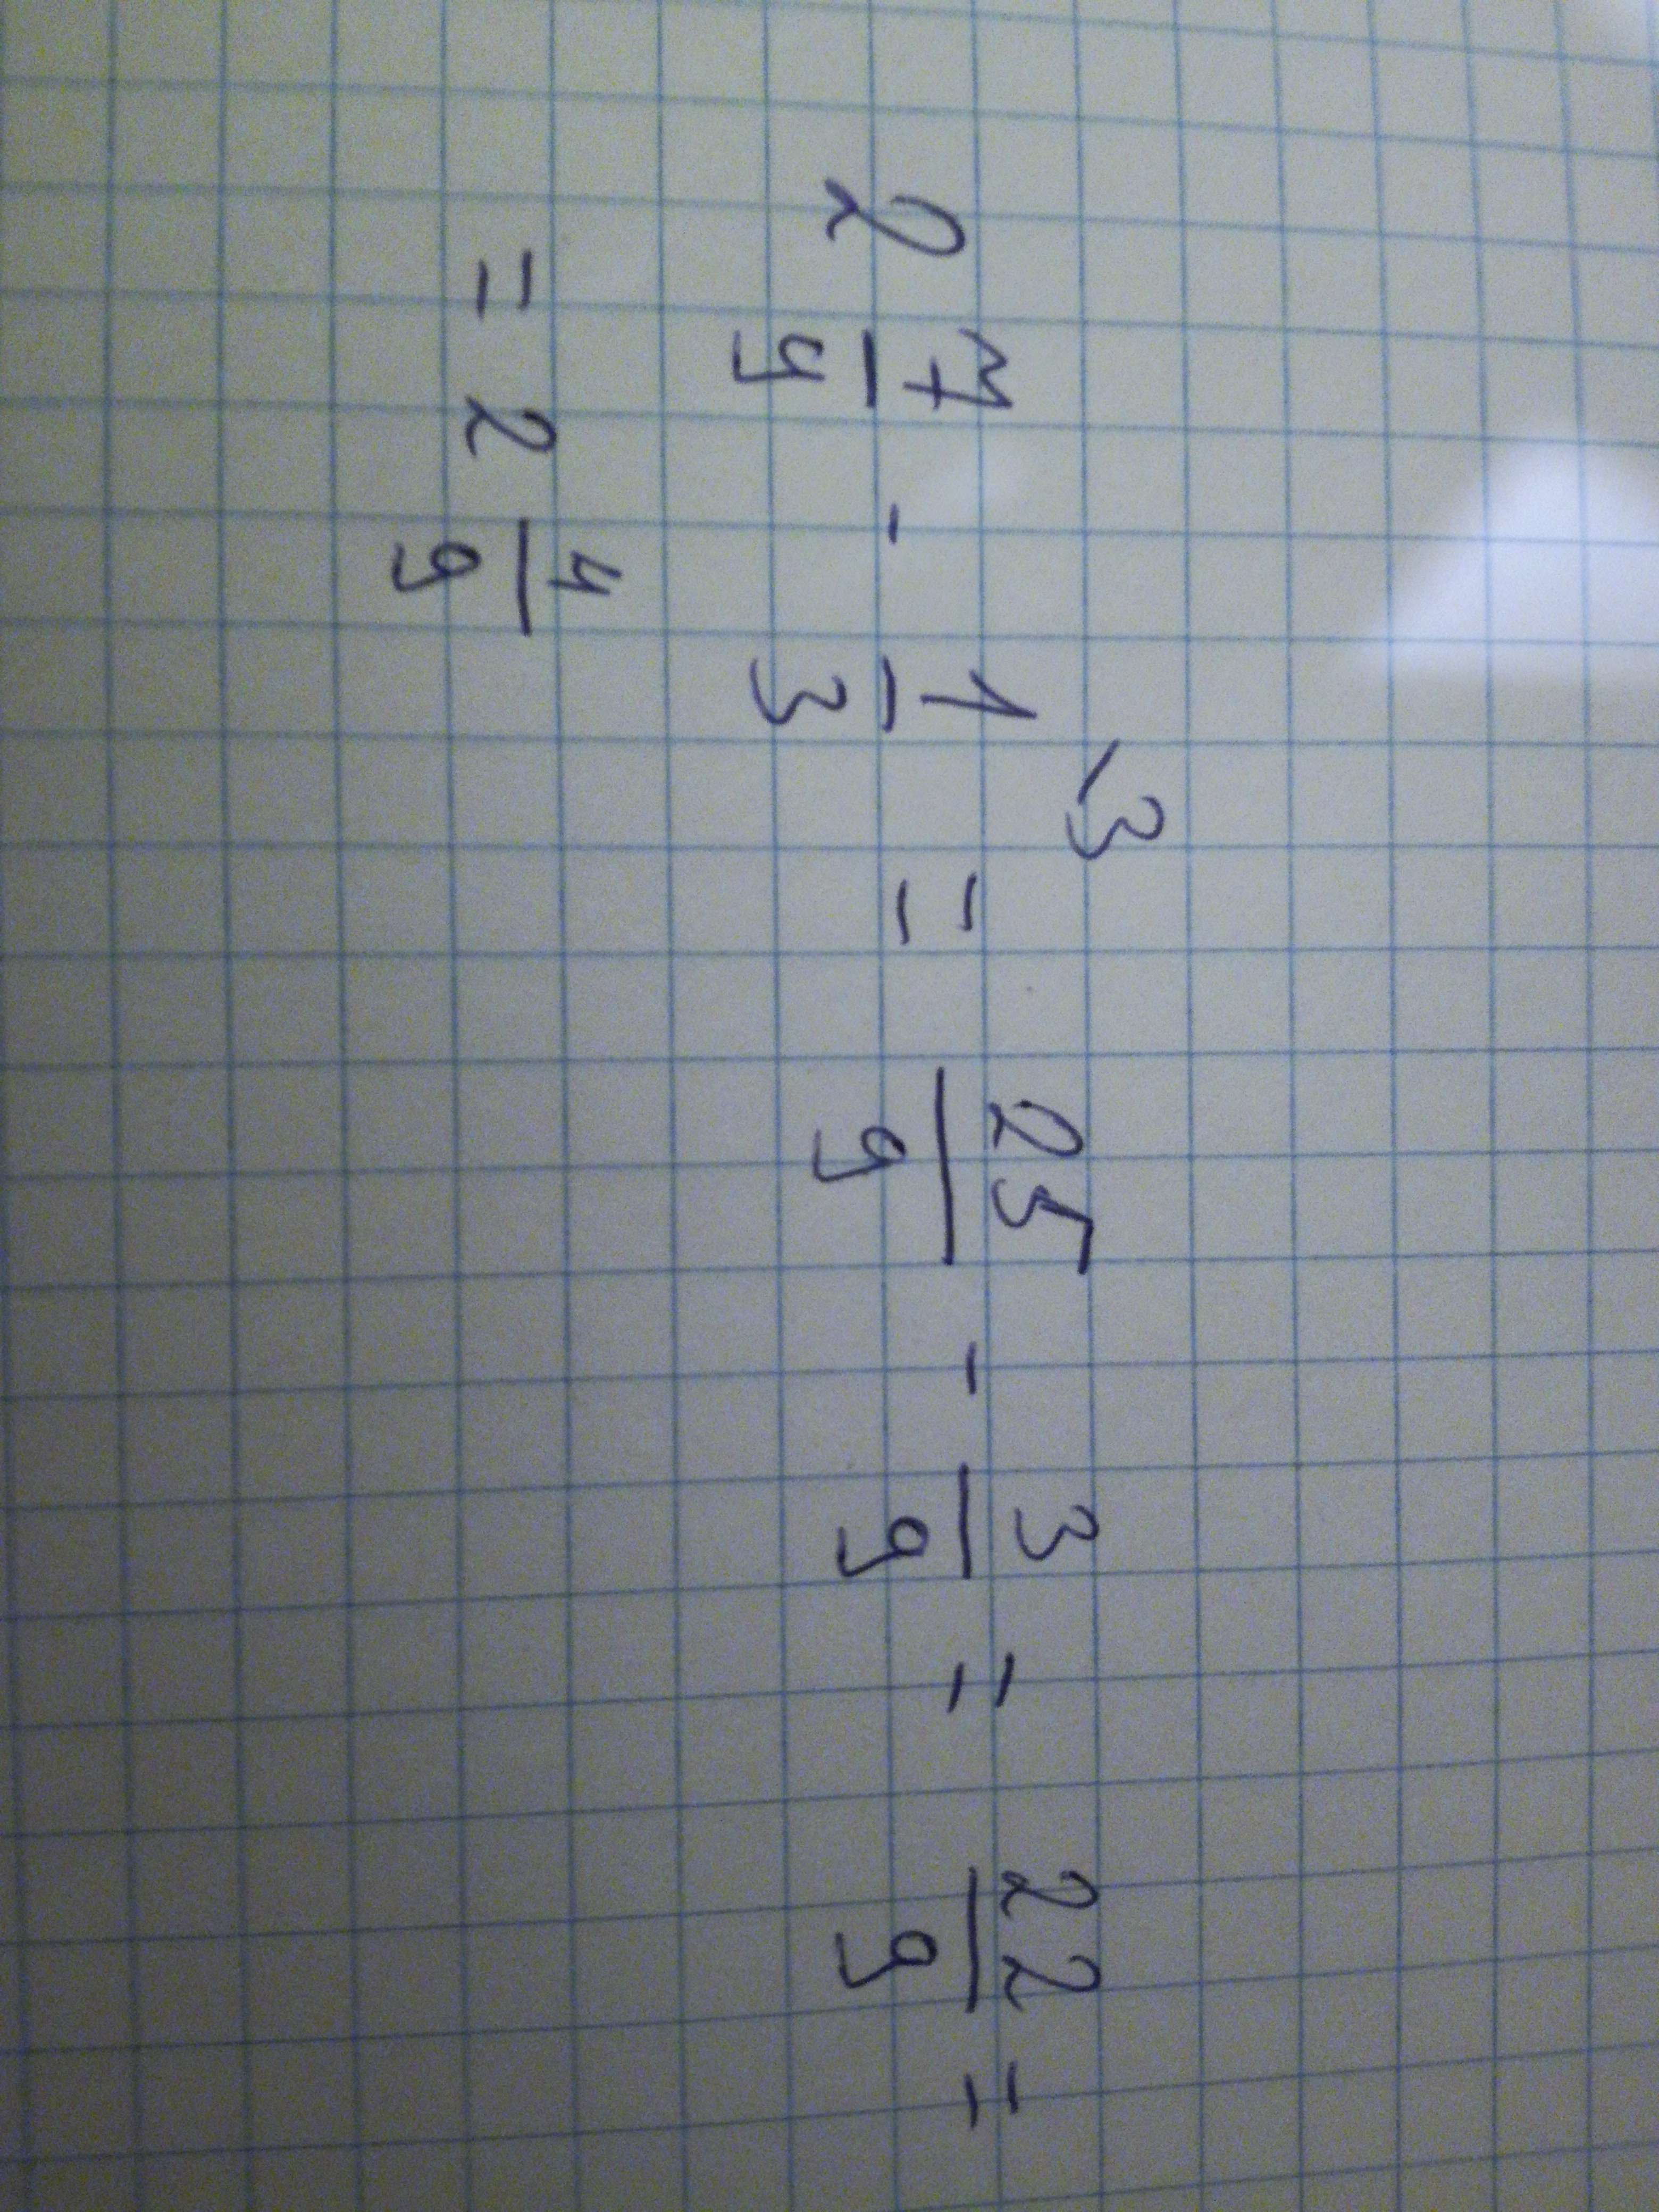 2 7/9 - 1/3 \3 = 25/9 - 3/9 = 22/9 =
= 2 4/9